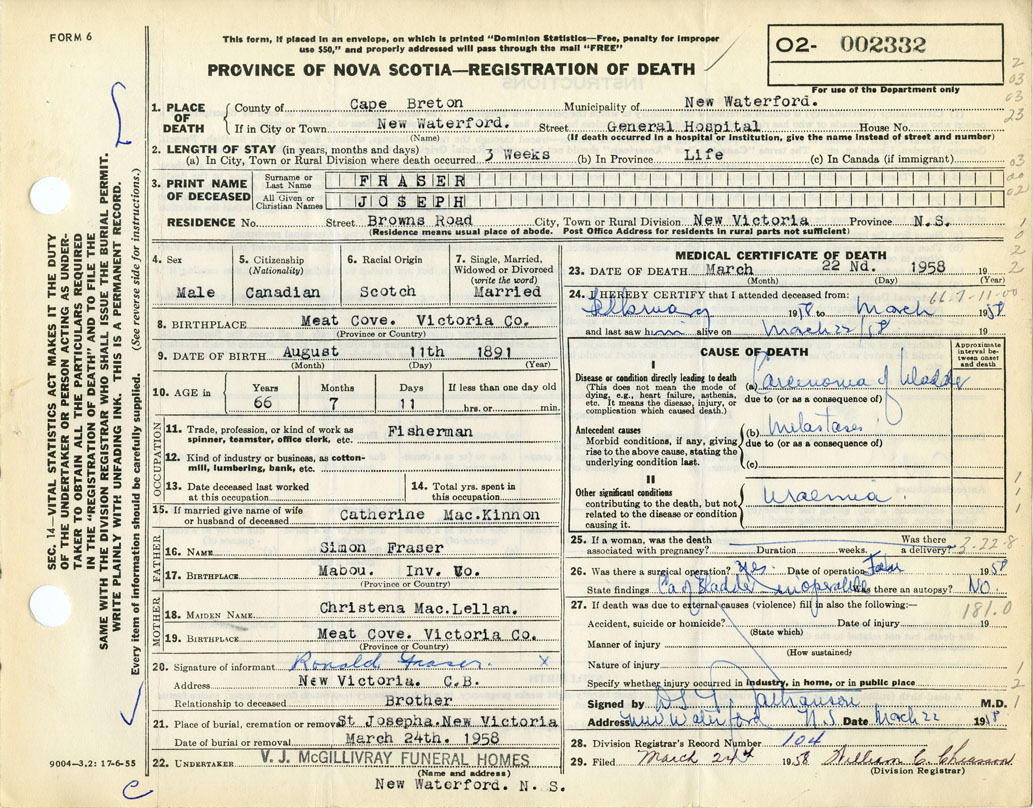 FORM 6
This form, if placed in an envelope, on which is printed "Dominion Statistics—Free, penalty for improper
use $50," and properly addressed will pass through the mail "FREE"
O2- 002332
For use of the Department only
PROVINCE OF NOVA SCOTIA—REGISTRATION OF DEATH
1. PLACE OF DEATH County of Cape Breton Municipality of New Waterford.
If in City or Town New Waterford. Street General Hospital House No.
(Name) (If death occurred in a hospital or institution, give the name instead of street and number)
2. LENGTH OF STAY (in years, months and days)
(a) In City, Town or Rural Division where death occurred 3 Weeks (b) In Province Life (c) In Canada (if immigrant)
3. PRINT NAME OF DECEASED
Surname or Last Name FRASER
All Given or Christian Names JOSEPH
RESIDENCE No. Street Browns Road City, Town or Rural Division New Victoria Province N.S.
(Residence means usual place of abode. Post Office Address for residents in rural parts not sufficient)
4. Sex Male
5. Citizenship (Nationality) Canadian
6. Racial Origin Scotch
7. Single, Married, Widowed or Divorced (write the word) Married
8. BIRTHPLACE Meat Cove. Victoria Co.
(Province or Country)
9. DATE OF BIRTH August 11th 1891
(Month) (Day) (Year)
10. AGE in Years 66 Months 7 Days 11 If less than one day old hrs. or min.
OCCUPATION
11. Trade, profession, or kind of work as spinner, teamster, office clerk, etc. Fisherman
12. Kind of industry or business, as cotton-mill, lumbering, bank, etc.
13. Date deceased last worked at this occupation
14. Total yrs. spent in this occupation
15. If married give name of wife or husband of deceased Catherine Mac.Kinnon
FATHER
16. NAME Simon Fraser
17. BIRTHPLACE Mabou. Inv. Co.
(Province or Country)
MOTHER
18. MAIDEN NAME Christena Mac.Lellan.
19. BIRTHPLACE Meat Cove. Victoria Co.
(Province or Country)
20. Signature of informant Ronald Fraser. x
Address New Victoria. C.B.
Relationship to deceased Brother
21. Place of burial, cremation or removal St Josephs.New Victoria
Date of burial or removal March 24th. 1958
22. UNDERTAKER V. J. McGILLIVRAY FUNERAL HOMES
(Name and address)
New Waterford. N. S.
9004—3.2: 17-6-55
MEDICAL CERTIFICATE OF DEATH
23. DATE OF DEATH March 22 Nd. 1958 19
(Month) (Day) (Year)
66-7-11-00
24. I HEREBY CERTIFY that I attended deceased from:
February 1958 to March 1958
and last saw him alive on March 22/58 19
CAUSE OF DEATH
Approximate interval between onset and death
I
Disease or condition directly leading to death
(This does not mean the mode of dying, e.g., heart failure, asthenia, etc. It means the disease, injury, or complication which caused death.)
(a) Carcinoma of bladder
due to (or as a consequence of)
Antecedent causes
Morbid conditions, if any, giving rise to the above cause, stating the underlying condition last.
(b) Metastases
due to (or as a consequence of)
(c)
II
Other significant conditions
contributing to the death, but not related to the disease or condition causing it.
Uraemia.
25. If a woman, was the death associated with pregnancy? Duration weeks. Was there a delivery?
3-22-8
26. Was there a surgical operation? Yes. Date of operation 1958
State findings Ca of Bladder inoperable Was there an autopsy? NO.
27. If death was due to external causes (violence) fill in also the following:—
181.0
Accident, suicide or homicide? Date of injury 19
(State which)
Manner of injury
(How sustained)
Nature of injury
Specify whether injury occurred in industry, in home, or in public place
Signed by M.D.
Address New Waterford N.S. Date March 22 1958
28. Division Registrar's Record Number 104
29. Filed March 24th 1958 William C. Chiasson
(Division Registrar)
SEC. 14—VITAL STATISTICS ACT MAKES IT THE DUTY
OF THE UNDERTAKER OR PERSON ACTING AS UNDER-
TAKER TO OBTAIN ALL THE PARTICULARS REQUIRED
IN THE "REGISTRATION OF DEATH" AND TO FILE THE
SAME WITH THE DIVISION REGISTRAR WHO SHALL ISSUE THE BURIAL PERMIT.
WRITE PLAINLY WITH UNFADING INK. THIS IS A PERMANENT RECORD.
Every item of information should be carefully supplied. (See reverse side for instructions.)